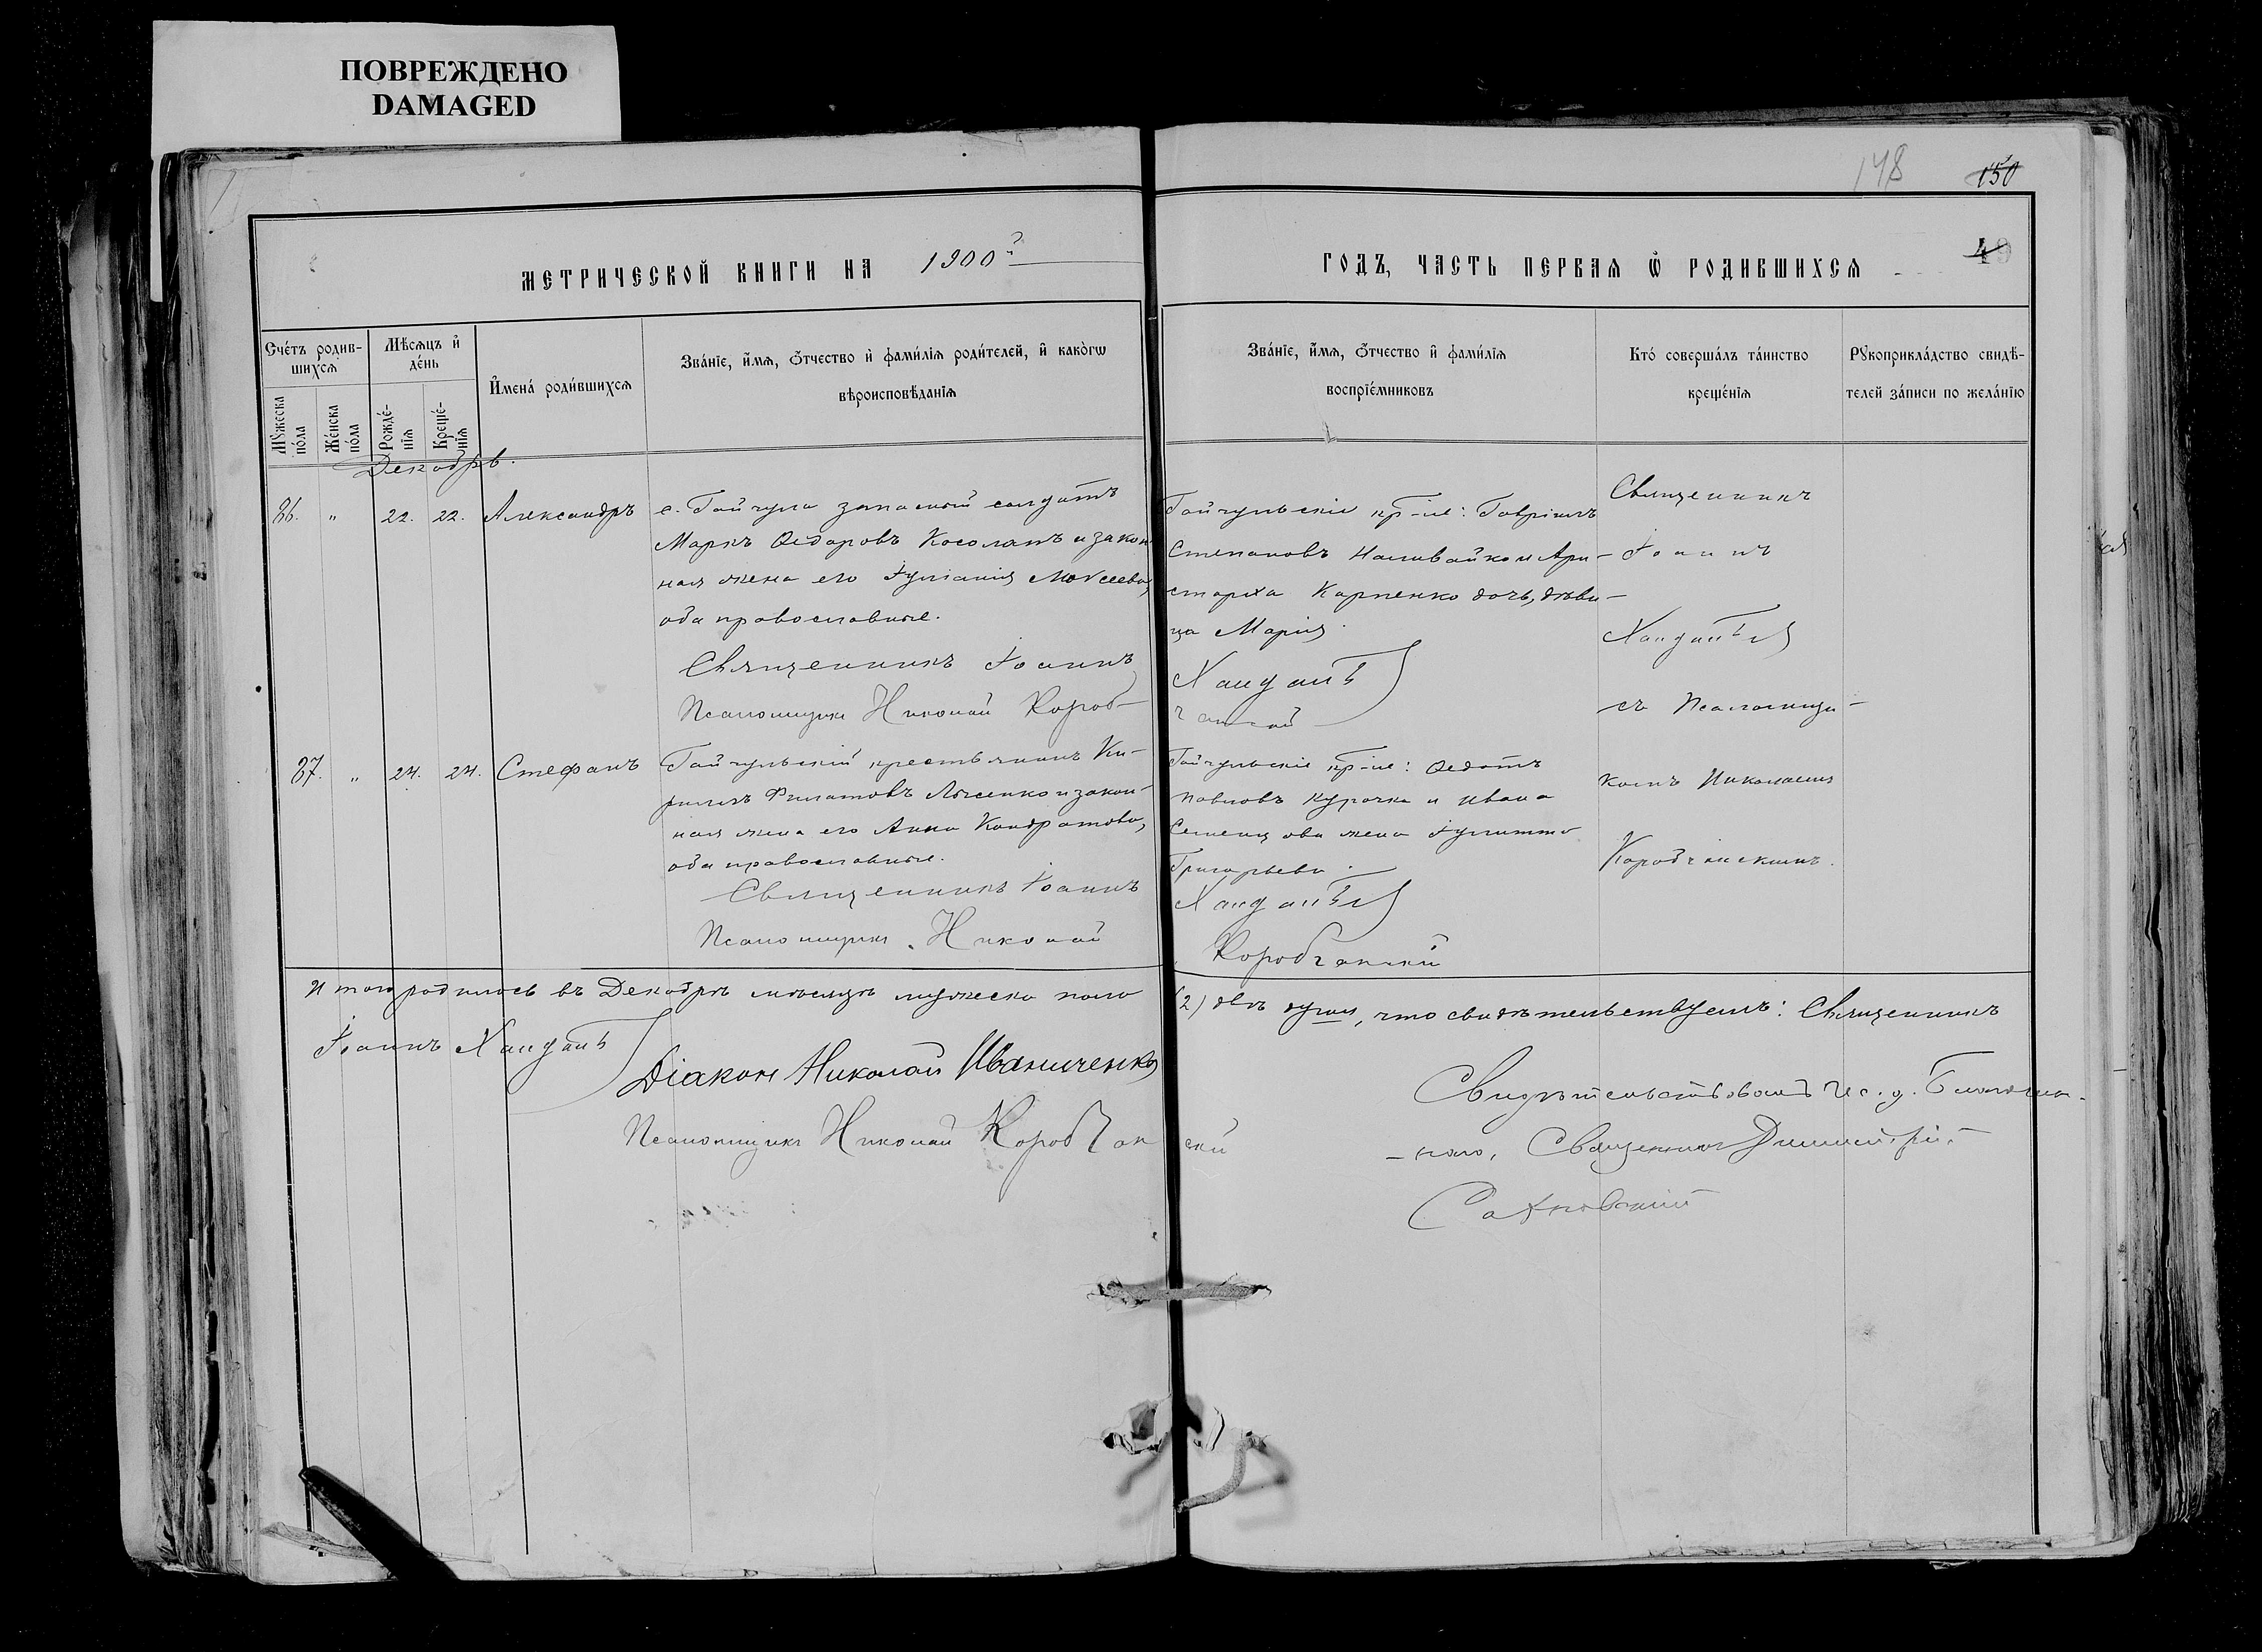 ПОВРЕЖДЕНО
DAMAGED
148
150
49
МЕТРИЧЕСКОЙ КНИГИ НА 1900й
ГОДЪ, ЧАСТЬ ПЕРВАЯ Ѡ РОДИВШИХСЯ
Счéтъ родив-
шихся
Мꙋжеска
пóла
Жéнска
пóла
Мѣсяцъ и҆
дéнь
Рождé-
нїя
Крещé-
нїя
И҆менá роди́вшихся
Звáнїе, и҆́мя, ѻ҆́тчество и҆ фами́лїя роди́телей, и҆ какóгѡ
вѣроисповѣ́данїя
Звáнїе, и҆́мя, ѻ҆́тчество и҆ фами́лїя
воспрїéмниковъ
Ктó совершáлъ тáинство
крещéнїя
Рꙋкоприклáдство свидѣ́-
телей зáписи по желáнїю
Декабрь.
86. " 22. 22. Александръ
с. Гайчула запасный солдатъ
Маркъ Ѳедоровъ Косолапъ и закон
ная жена его Іуліанія Моѵсеева,
оба православные.
Священникъ Іоаннъ
Псаломщикъ Николай Короб-
Гайчульскіе кр-не: Гавріилъ
Степановъ Наливайко и Ари-
старха Карпенко дочь, дѣви-
ца Марія.
чанскій
Священникъ
Іоаннъ
съ Псаломщи-
комъ Николаемъ
Коробчанскимъ.
87. " 24. 24. Стефанъ
Гайчульскій крестьянинъ Ки-
риллъ Филатовъ Лысенко и закон-
ная жена его Анна Кондратова,
оба православные.
Священникъ Іоаннъ
Псаломщикъ Николай
Гайчульскіе кр-не: Ѳедотъ
Павловъ Курочка и Ивана
жена Іулитта
Григорьева.
Коробчанскій
Итого родилось въ Декабрѣ мѣсяцѣ мужеска пола (2) двѣ души, что свидѣтельствуемъ: Священникъ
Іоаннъ
Діаконъ Николай Иваниченко
Псаломщикъ Николай Коробчанскій
Свидѣтельствовалъ И. д. Благочин-
наго, Священникъ Димитрій